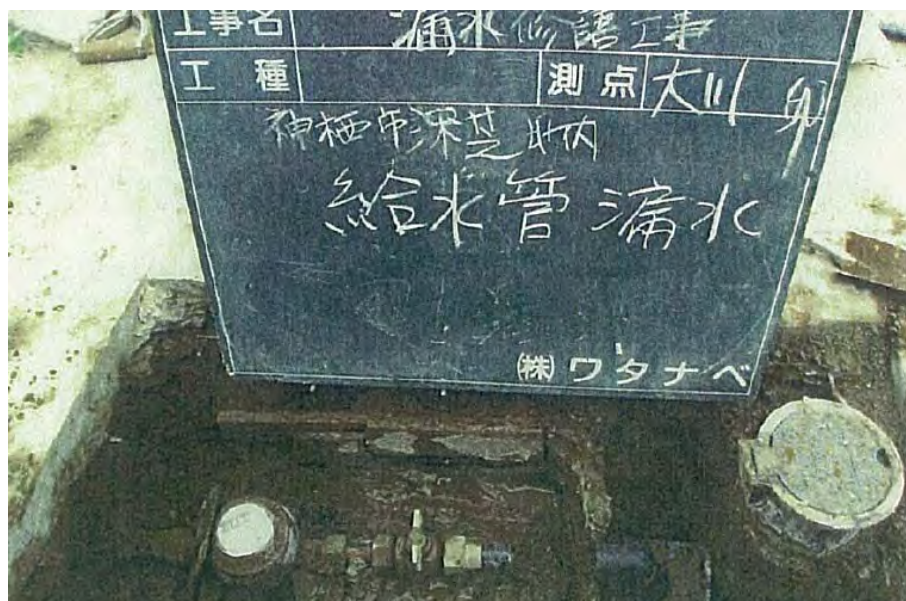 工事名 漏水修繕工事
工種 測点 大川
神栖市深芝地内
給水管漏水
㈱ワタナベ